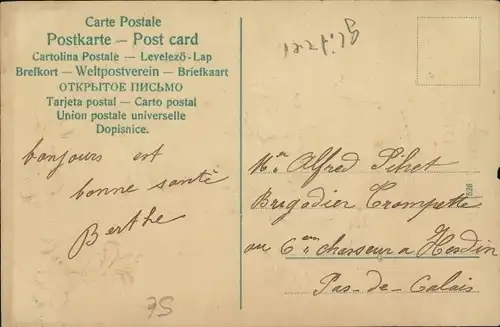 Carte Postale
Postkarte — Post card
Cartolina Postale — Levelező-Lap
Brefkort — Weltpostverein — Briefkaart
ОТКРЫТОЕ ПИСЬМО
Tarjeta postal — Carto postal
Union postale universelle
Dopisnice.
bonjours est
bonne santé
Berthe
75
Alfred
Brigadier Trompette
au 6 chasseur a Hesdin
Pas-de-Calais